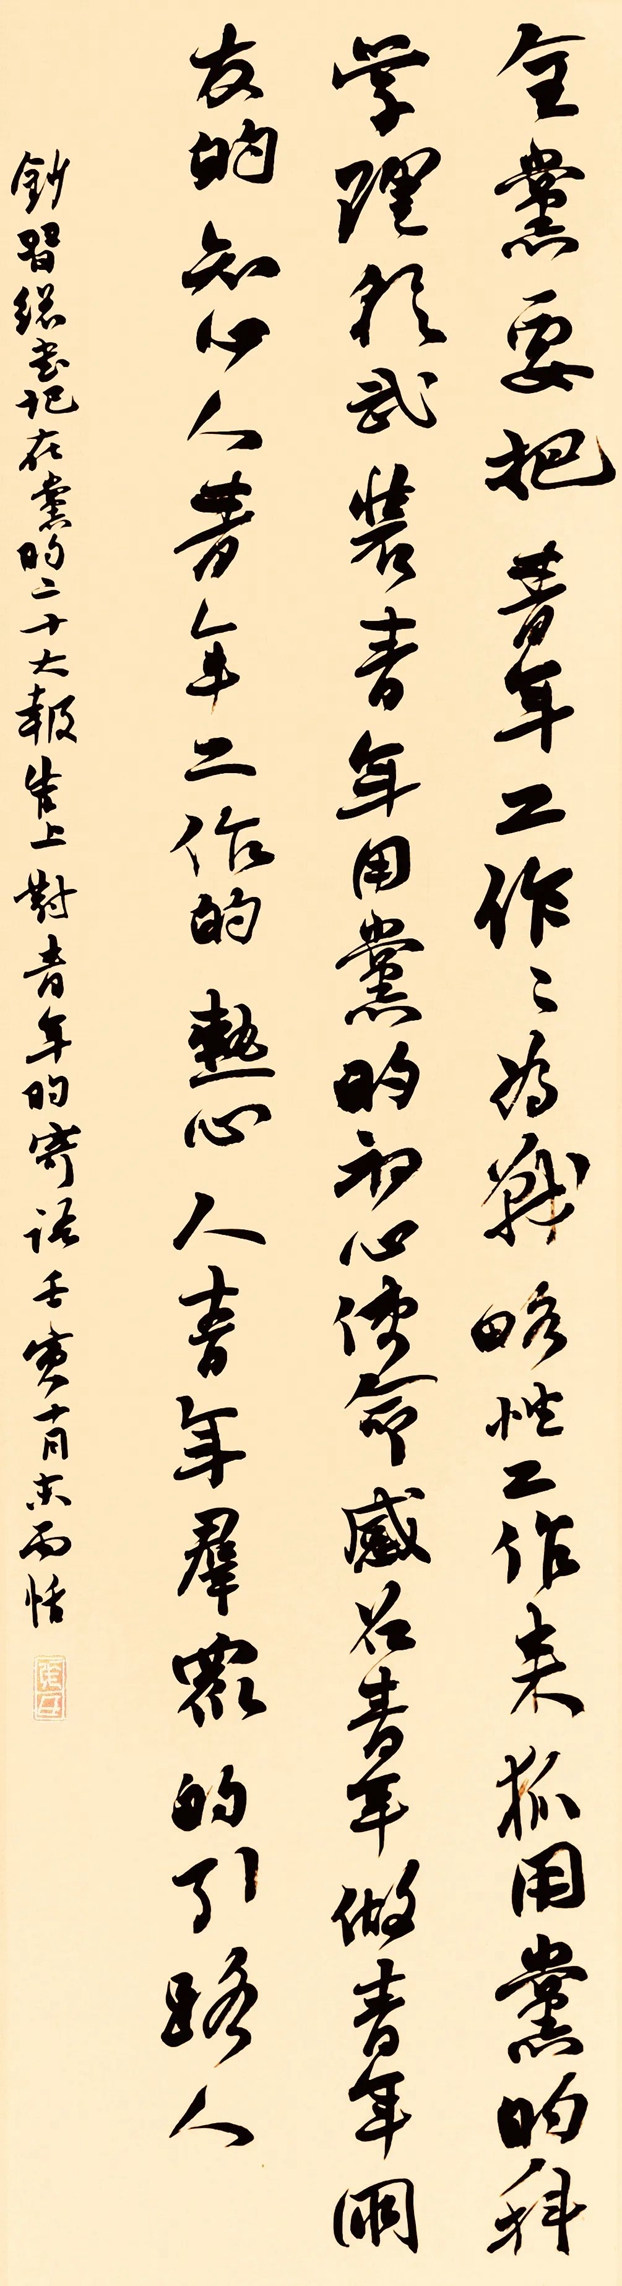 全黨要把青年工作〻為戰略性工作来抓用黨的科
学理論武裝青年用黨的初心使命感召青年做青年朋
友的知心人青年工作的熱心人青年羣眾的引路人
鈔習總書記在黨的二十大報告上對青年的寄語壬寅十月末雨恬